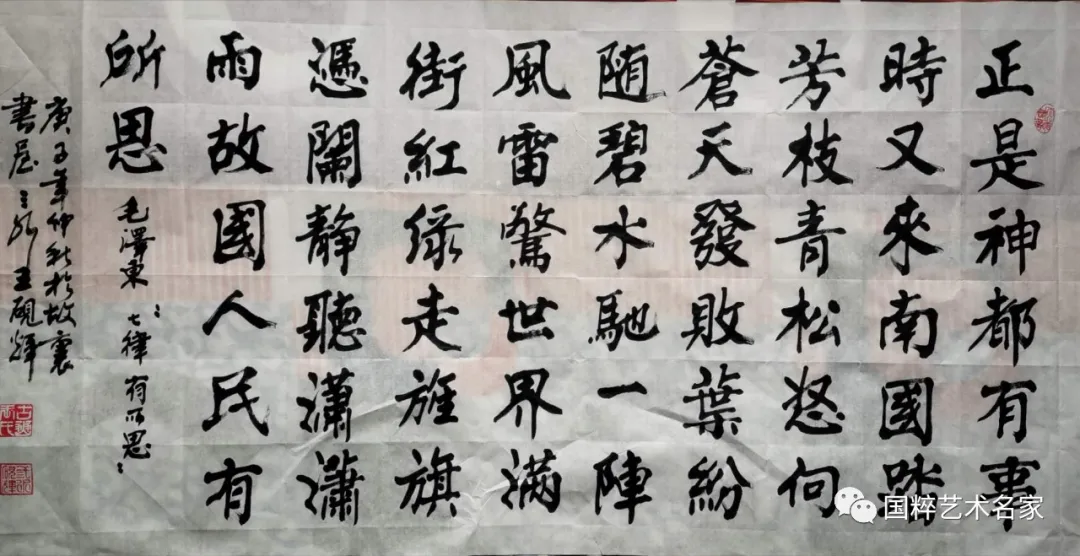 正是神都有事
時又來南國踏
芳枝青松怒向
蒼天發敗葉紛
随碧水馳一陣
風雷驚世界满
街紅緑走旌旗
慿闌靜聽瀟瀟
雨故國人民有
所思
毛澤東:七律有所思:
庚子年仲秋於故襄
書屋 王硯輝
国粹艺术名家